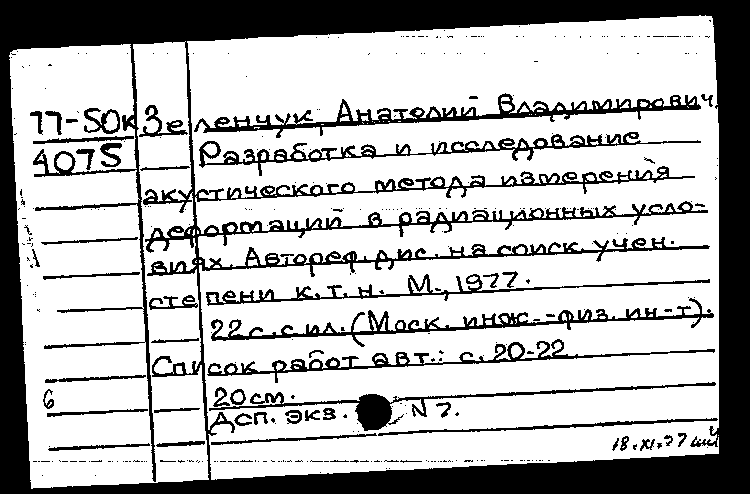 77-SOк Зеленчук, Анатолий Владимирович.
4075 Разработка и исследование
акустического метода измерения
деформаций в радиационных усло-
виях. Автореф. дис. на соиск. учен.
степени к.т.н. М., 1977.
22 с. с ил. (Моск. инж.-физ. ин-т).
Список работ авт.: с. 20-22
6 20 см.
Дсп. экз. N 7.
18.XI.77